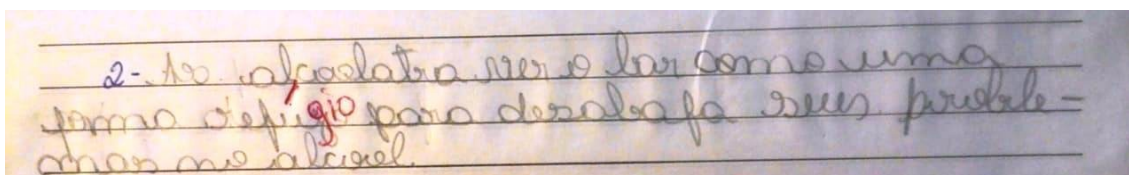 2- Ao alcoolatra ver o bar como uma
forma refúgio para desabafa seus proble-
mas no alcool.